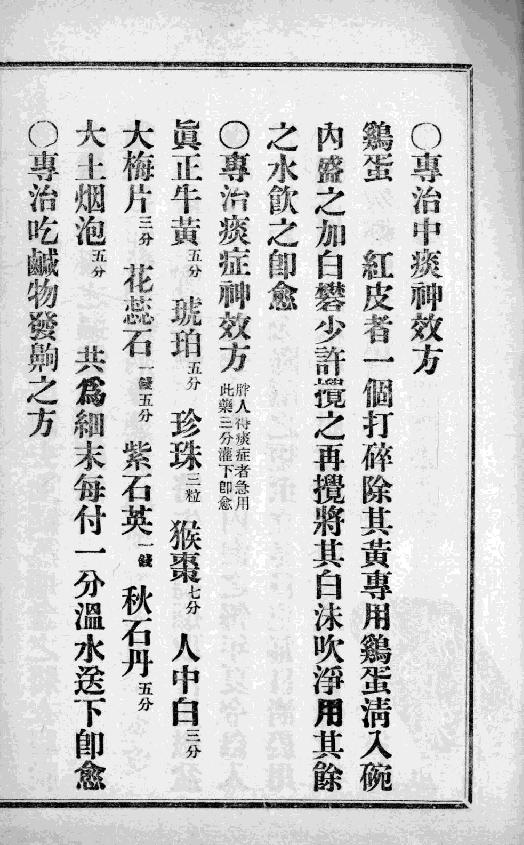 〇專治中痰神效方
鷄蛋 紅皮者一個打碎除其黃專用鷄蛋淸入碗
內盛之加白礬少許攪之再攪將其白沫吹淨用其餘
之水飮之卽愈
〇專治痰症神效方 胖人得痰症者急用此藥三分灌下卽愈
眞正牛黃五分 琥珀五分 珍珠三粒 猴棗七分 人中白三分
大梅片三分 花蕊石一錢五分 紫石英一錢 秋石丹五分
大土烟泡五分 共爲細末每付一分溫水送下卽愈
〇專治吃鹹物發齁之方